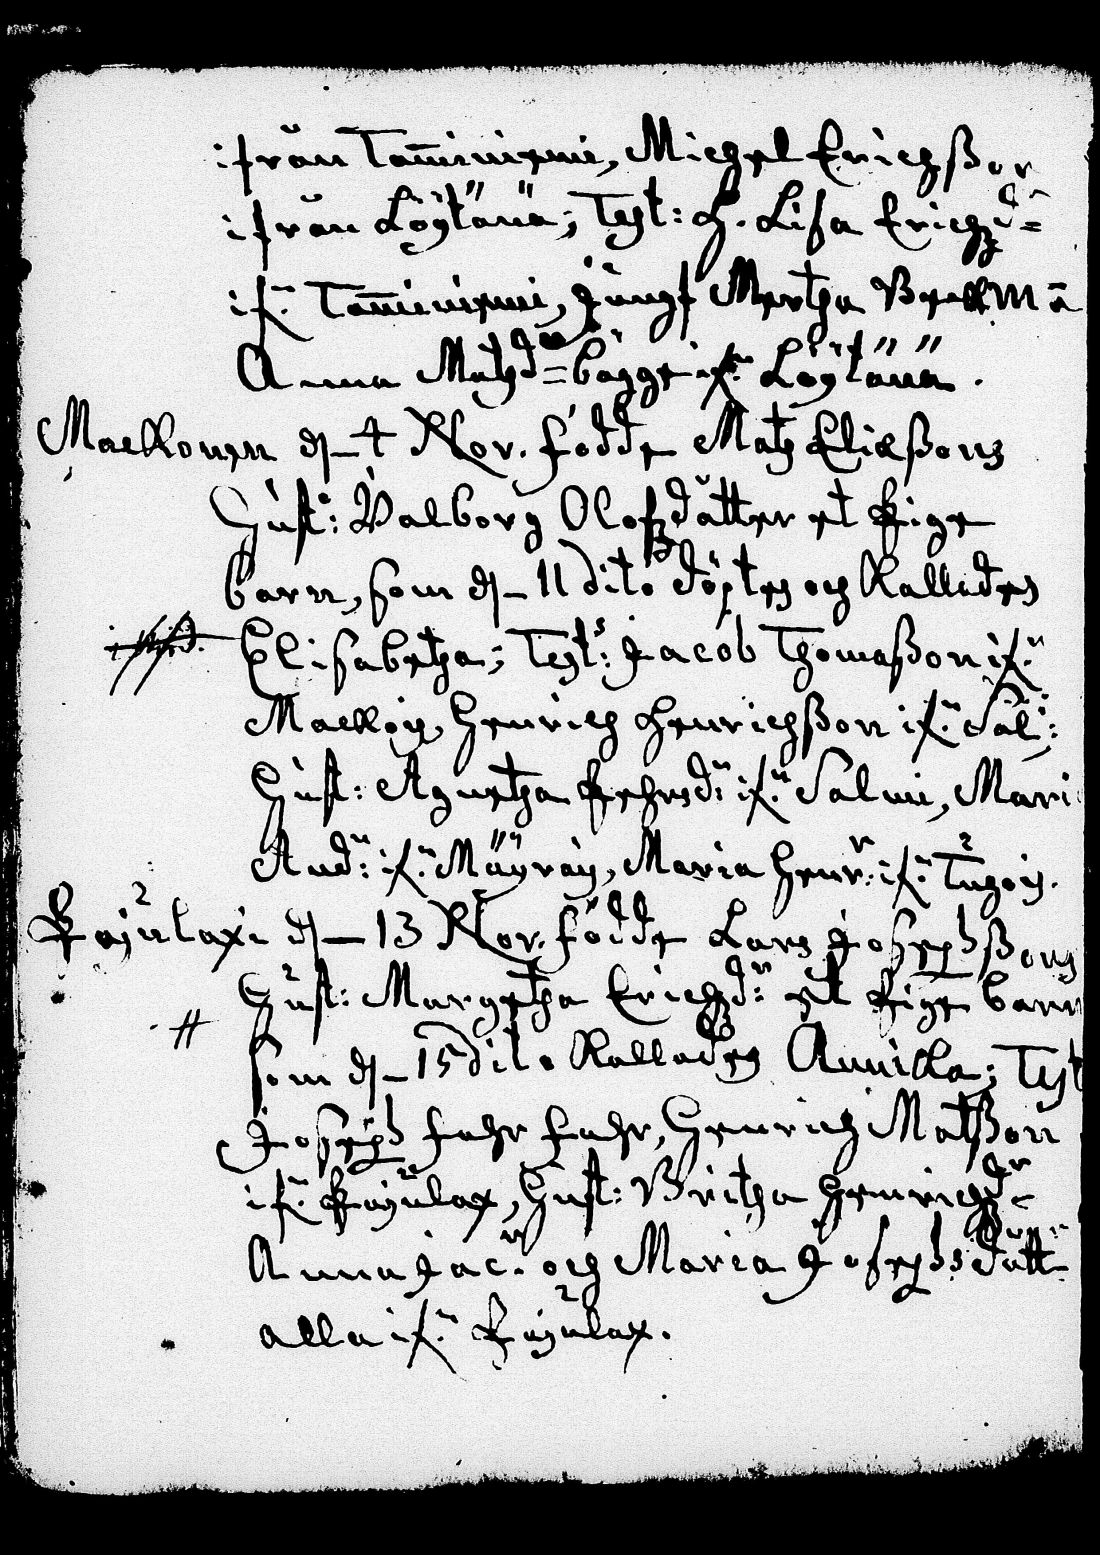 ifrån Tam̄iniemi, Michel Erichßon
ifrån Löytänä; Test: H. Lisa Erichzd=
if:n Tam̄iniemi, Jungf Mertha
Anna Matzd= bägge if:n Löytänä.
Mackonen d— 4 Nov. födde Matz Eliæßons
Hust: Valborg Olofzdåtter et Pige
barn, som d— 11 dito döptes och Kallades
Elisabetha; Test: Jacob Thomaßon if:n
Henrich Henrichßon if:n Sal:
Hust: Agnetha Pehrsd: if:n Salmi, Mari
And: if:n Mäyräy, Maria Henr: if:n
Pajulaxi d— 13 Nov. födde Lars Josephßons
Hust: Margetha Erichzd: et Pige barn
som d— 15 dito Kallades Annicka; Test
Joseph Henrich Matßon
if:n Pajulax, Hust: Britha Henrichzd=
Anna Jac. och Maria Josephsdått
alla if:n Pajulax.